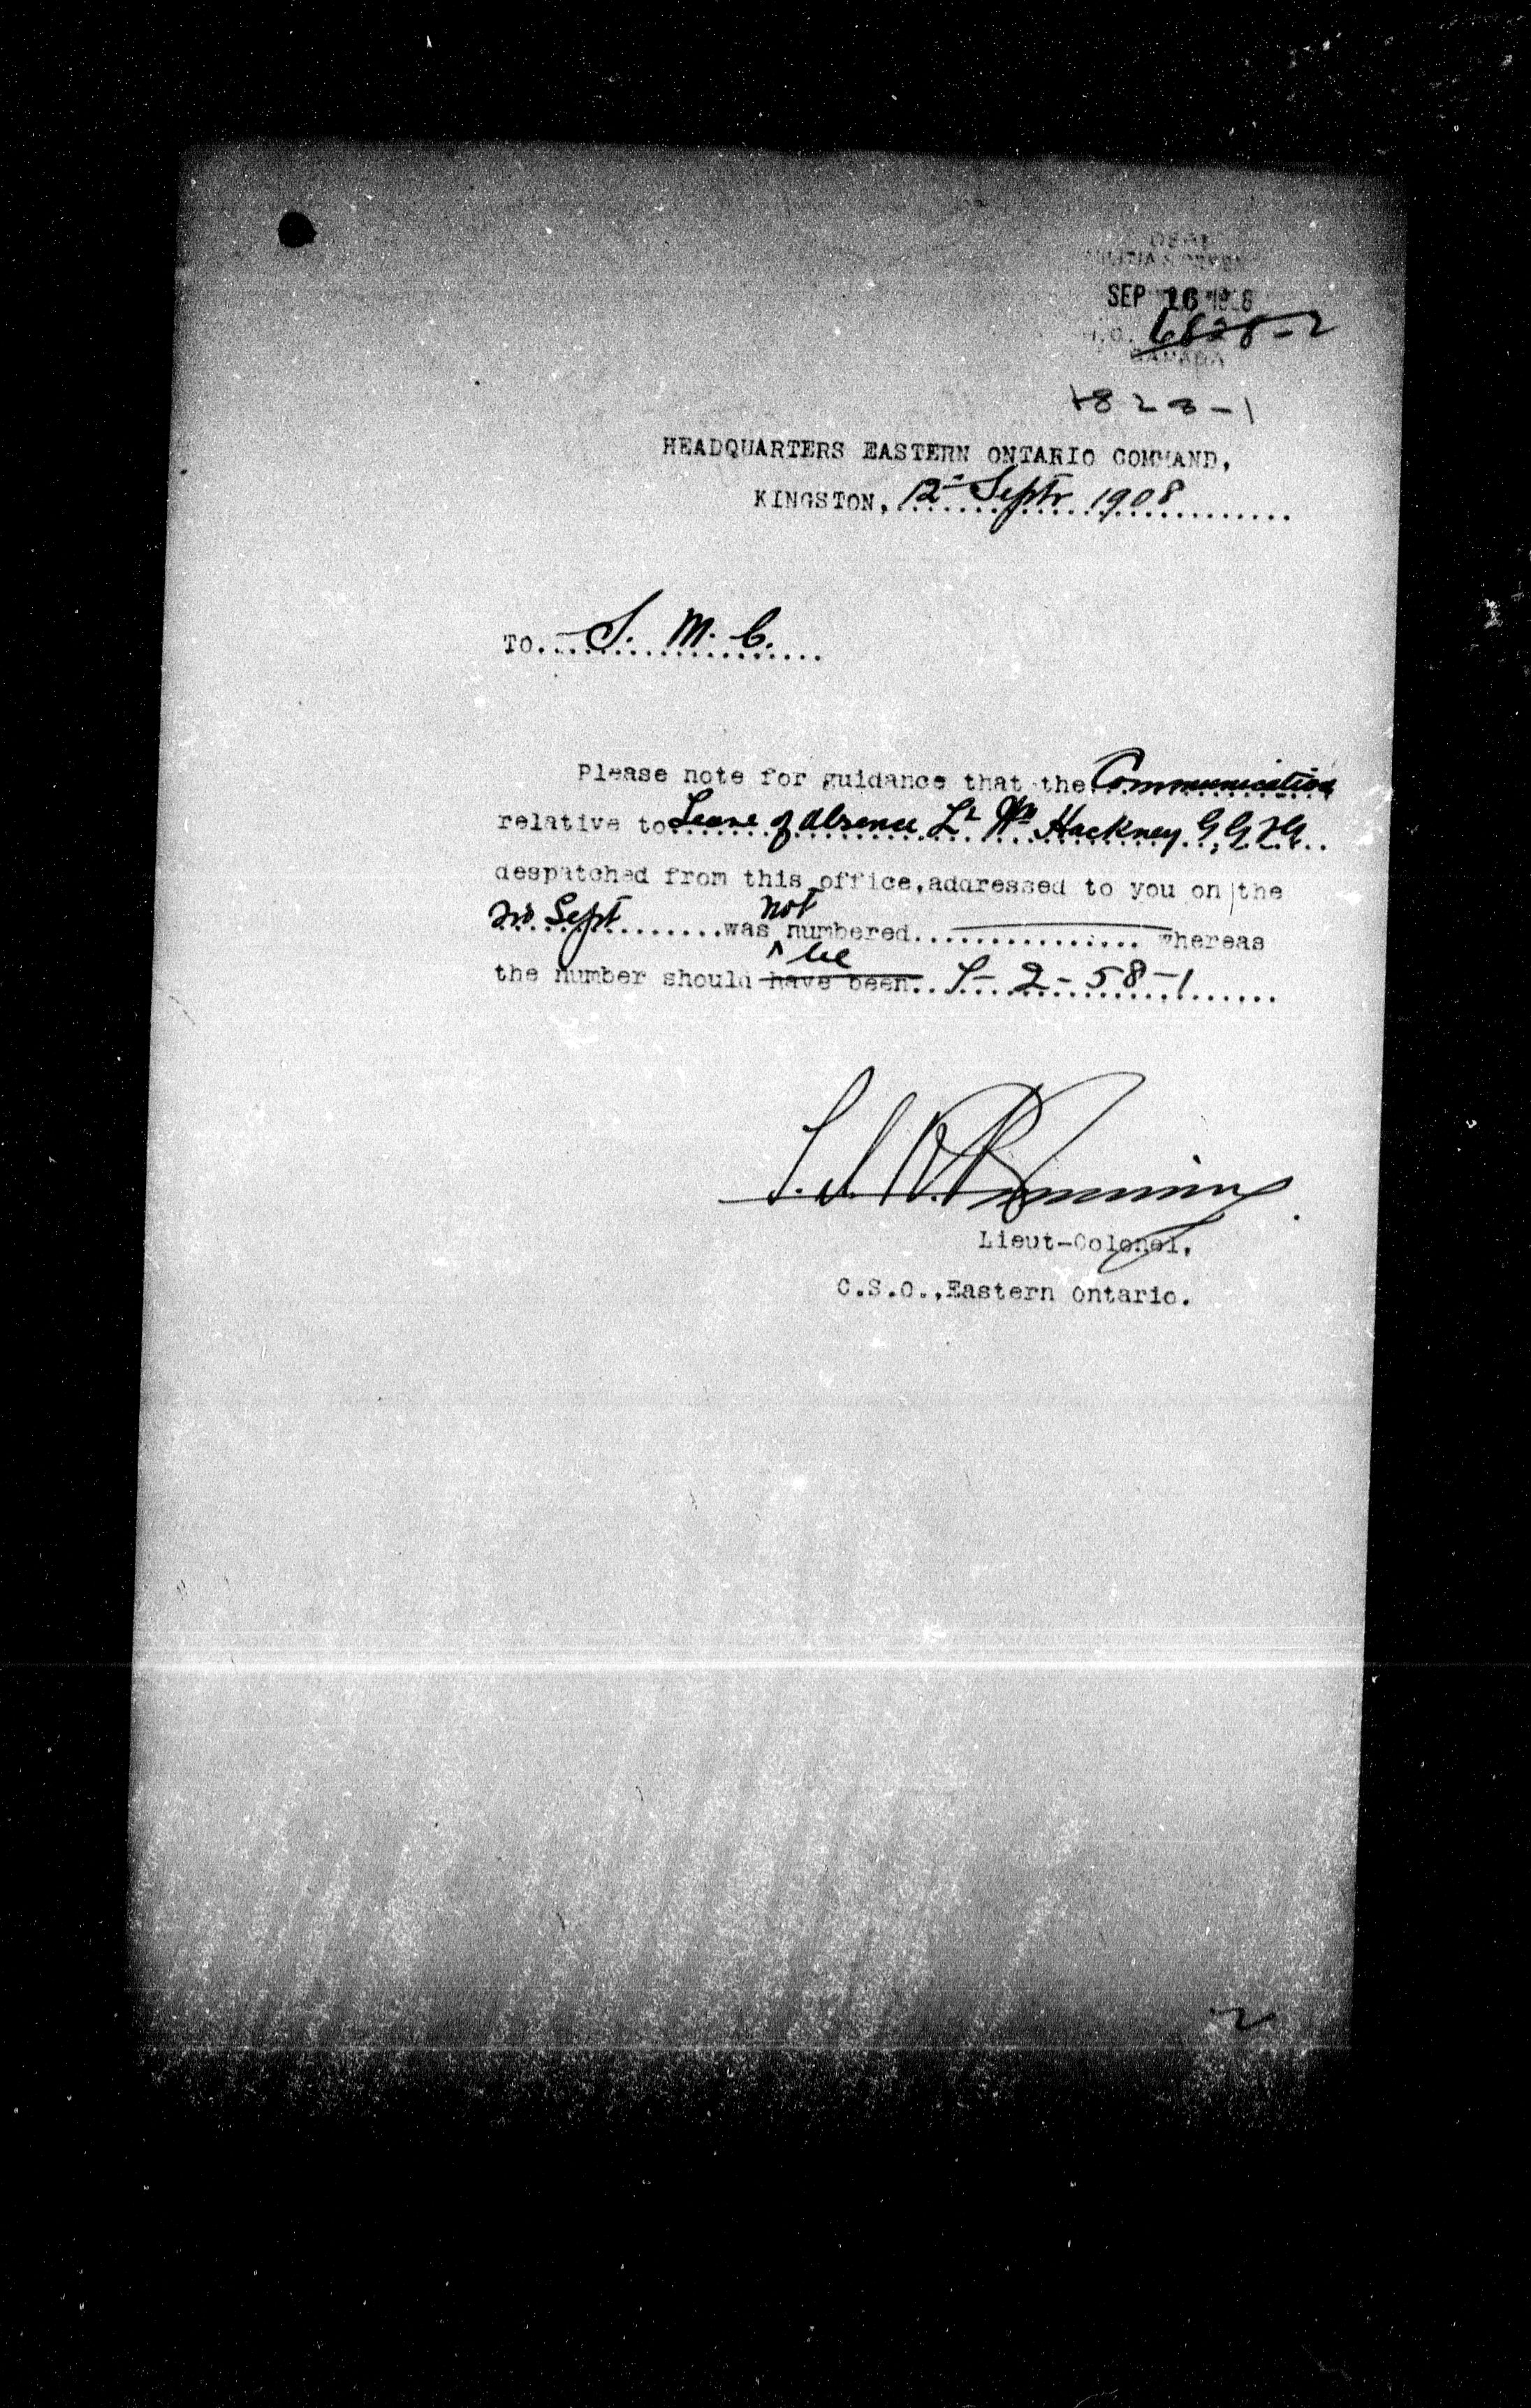 SEP 16 1908
6828-2
CANADA
HEADQUARTERS EASTERN ONTARIO COMMAND,
KINGSTON, 12th Septr 1908
To. S. M. C.
Please note for guidance that the Communication
relative to Leave of absence Lt Wm Hackney G.G.F.G.
despatched from this office, addressed to you on the
not
Sept was numbered whereas
be
the number should have been 2-58-1
Lieut-Colonel,
C.S.O., Eastern Ontario.
2